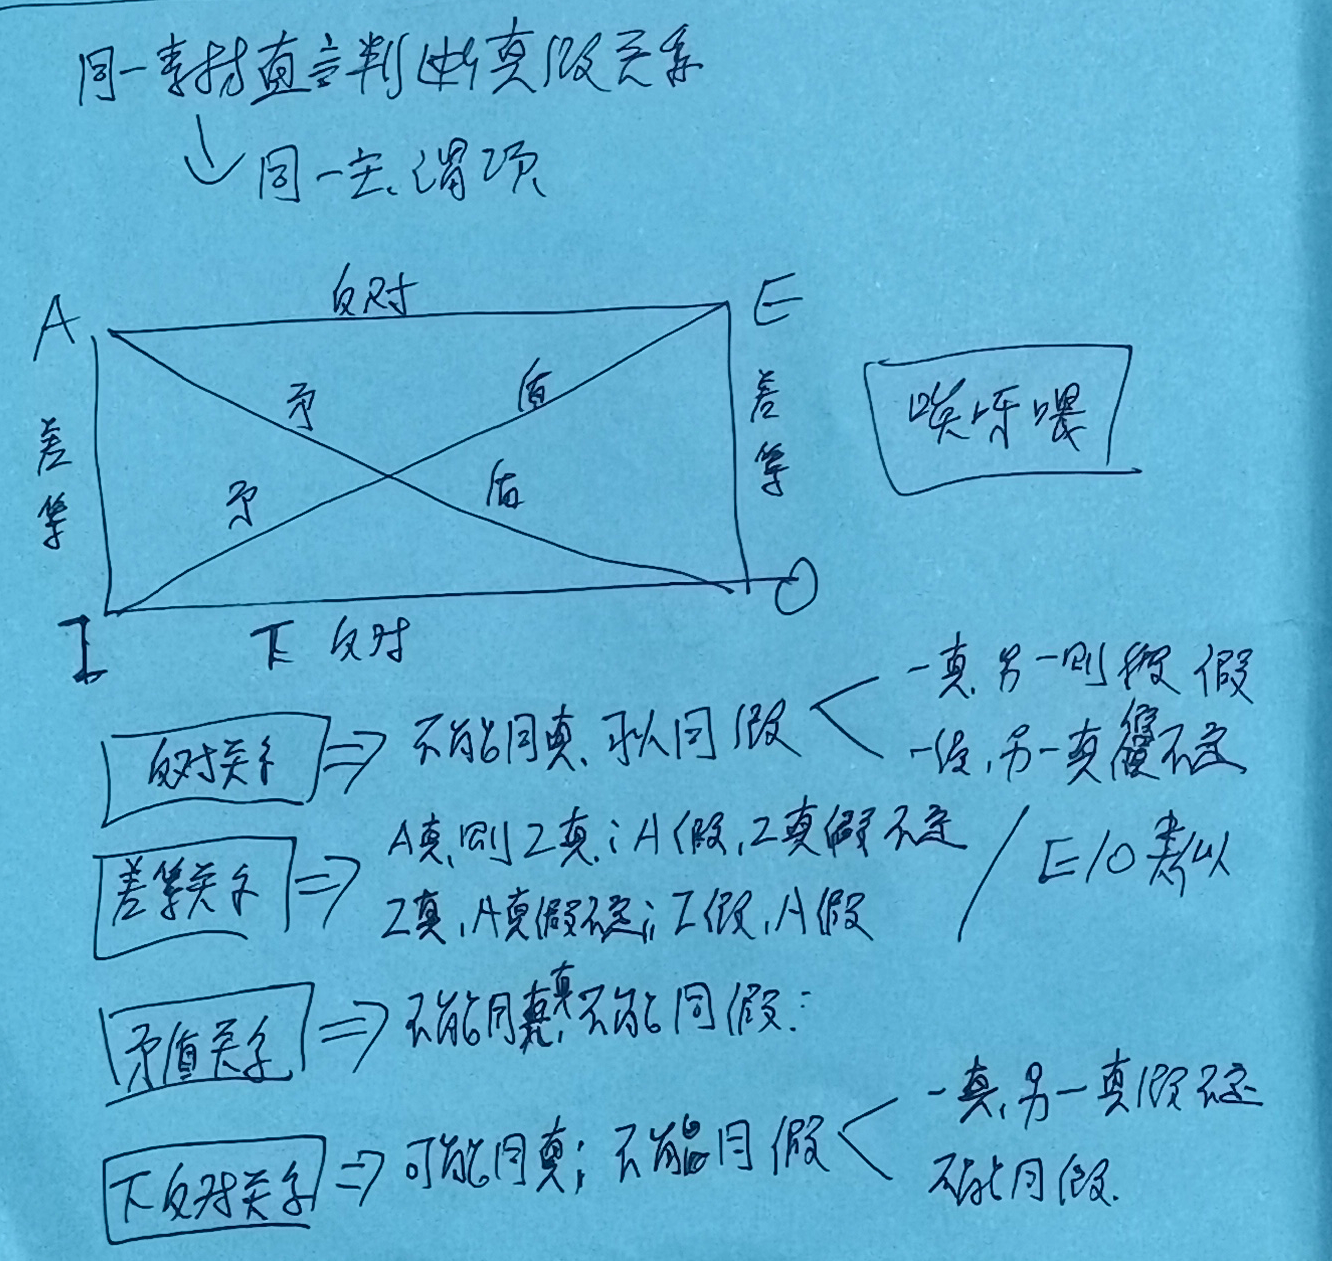 同一素材直言判断真假关系
同一主、谓项
A
反对
E
矛
盾
差等
差等
唉呀喂
矛
盾
I
下反对
O
反对关系 => 不能同真、可以同假
一真,另一则 假
一假,另一真假不定
差等关系 => A真,则I真;A假,I真假不定
I真,A真假不定;I假,A假
/ E/O类似
矛盾关系 => 不能同真,不能同假:
下反对关系 => 可能同真;不能同假
一真,另一真假不定
不能同假.